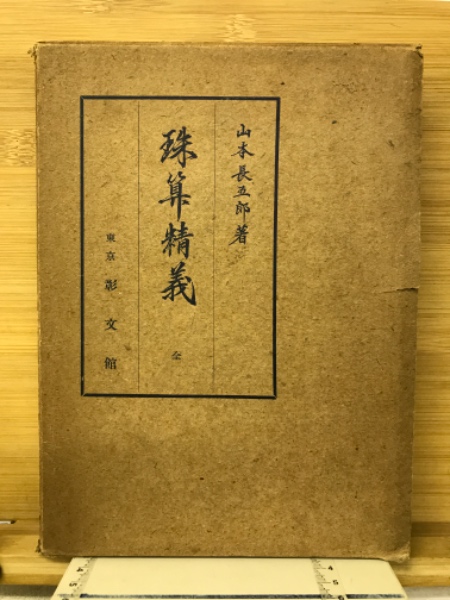 山本長五郎著
珠算精義
全
東京 彰文館